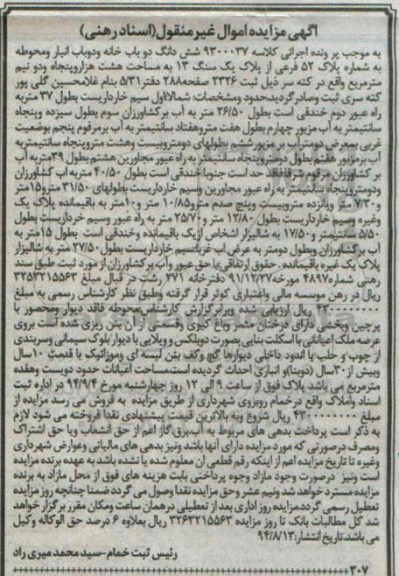 آگهی مزایده اموال غیرمنقول(اسناد رهنی)
به موجب پرونده اجرائی کلاسه ۹۳۰۰۰۳۷ شش دانگ دو باب خانه ودوباب انبار ومحوطه
به شماره پلاک ۵۲ فرعی از پلاک یک سنگ ۱۳ به مساحت هشت هزاروپنجاه ودو نیم
مترمربع واقع در کته سر ذیل ثبت ۲۳۲۶ صفحه۲۸۸ دفتر۵/۳۱ بنام غلامحسین گلی پور
کته سری ثبت وصادرگردیدحدود ومشخصات: شمالااول سیم خارداریست بطول ۳۷ متربه
راه عبور دوم خندقی است بطول ۲۶/۵۰ متر به آب برکشاورزان سوم بطول سیزده وپنجاه
سانتیمتر به آب مزبور چهارم بطول هفت متروهفتاد سانتیمتر به آب برمرقوم پنجم بوضعیت
غربی بمعرض دومتراب بر مزبور ششم بطولهای دومتروبیست وهشت متروپنجاه سانتیمتربه
آب برمزبور هفتم بطول دومتروپنجاه سانتیمتر به راه عبور مجاورین هشتم بطول ۳۹متربه آب
بر کشاورزان مرقوم شرقافاقد حد است جنوباخندقی است بطول ۴۰/۵۰ متربه اب کشاورزان
ودومتروپنجاه سانتیمتر به راه عبور مجاورین وسیم خارداریست بطولهای ۳۱/۵۰ مترو۱۵متر
و۷/۳۰ متر وپانزده متروبیست وپنج صدم مترو۱۰/۸۵ متر و۱۰متر به باقیمانده پلاک یک
وغیره وسیم خارداریست بطول ۱۲/۸۰ متر و۲۵/۷۰ متر به راه عبور وسیم خاردارست بطول
۵/۵۰ سانتیمتر و۱۷/۵۰ به شالیزار اشخاص ازیک باقیمانده وخندقی است بطول ۱۵متر به
آب بر کشاورزان وبطول دومتر به عرض اب غرباسیم خارداریست بطول ۳۷/۵۰ متر به شالیزار
پلاک یک غیره باقیمانده . حقوق ارتفاقی با حق عبور وآب بر کشاورزان از مورد ثبت طبق سند
رهنی شماره۴۸۹۷ مورخه۹۱/۱۲/۲۷ دفترخانه ۲۷۱ رشت در قبال مبلغ ۳۲۵۳۲۱۵۵۶۳
ریال در رهن موسسه مالی واعتباری کوثر قرار گرفته وطبق نظر کارشناس رسمی به مبلغ
ریال ارزیابی شده وبرابرگزارش کارشناس‌محوطه فاقد دیوار ومحصور با
پرچین وبخشی دارای درختان مثمر وباغ کیوی وقسمتی از آن بتن ریزی شده است برروی
عرصه ملک‌اعیانی بااسکلت بنایی بصورت دوبلکس و ویلایی با دیوار بلوک سیمانی وسربندی
از چوب و حلب با اندود داخلی دیوارها گچ وکف بتن لیسه ای وموزائیک با قدمت ۱۰سال
وبیش از۳۰سال (دوبنا)و انباری احداث گردیده است.مساحت اعیانات حدود دویست وهفده
مترمربع می باشد پلاک فوق از ساعت ۹ الی ۱۲ روز چهارشنبه مورخ ۹۴/۹/۴ در اداره ثبت
اسناد واملاک واقع درخمام روبروی شهرداری از طریق مزایده به فروش می رسد مزایده از
مبلغ ریال شروع وبه بالاترین قیمت پیشنهادی نقدا فروخته می شود لازم
به ذکر است پرداخت بدهی های مربوط به آب،برق،گاز اعم از حق انشعاب ویا حق اشتراک
ومصرف درصورتی که مورد مزایده دارای آنها باشد ونیز بدهی های مالیاتی وعوارض شهرداری
وغیره تا تاریخ مزایده اعم از اینکه رقم قطعی ان معلوم شده یا نشده باشد به عهده برنده مزایده
است ونیز درصورت وجود مازاد وجوه پرداختی بابت هزینه های فوق از محل مازاد به برنده
مزایده مسترد خواهد شد ونیم عشر وحق مزایده نقدا وصول می گردد ضمنا چنانچه روز مزایده
تعطیل رسمی گردد،مزایده روز اداری بعد از تعطیلی درهمان ساعت ومکان مقرر برگزار خواهد
شد کل مطالبات بانک تا روز مزایده ۳۲۶۲۲۱۵۵۶۳ ریال بعلاوه ۶ درصد حق الوکاله وکیل
می باشد.تاریخ انتشار:۹۴/۸/۱۳
رئیس ثبت خمام-سیدمحمدمیری راد
۳۰۷